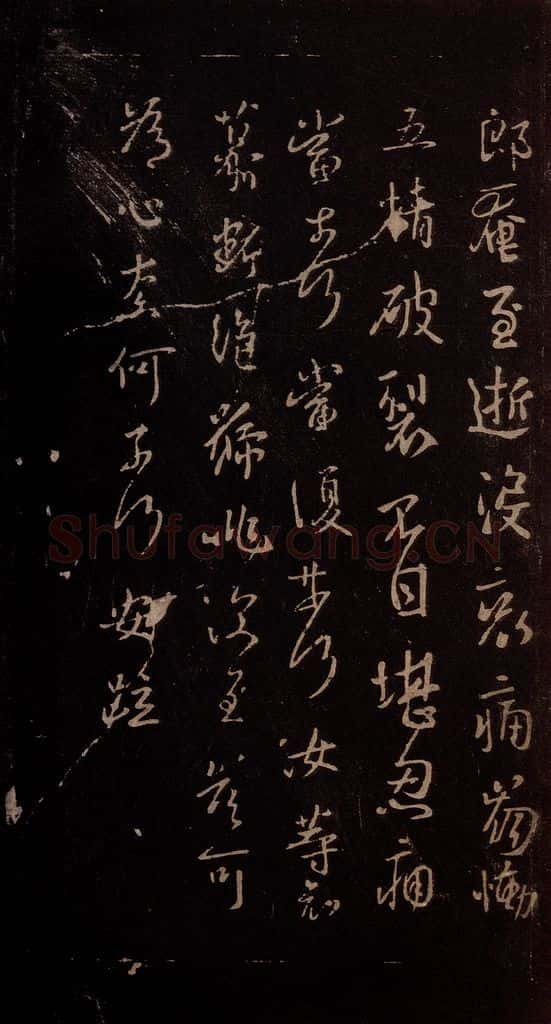 郎奄至逝没哀痛崩慟
五情破裂不自堪忍痛
當奈何當復奈何汝等哀
慕斷絶號咷深至豈可
為心奈何奈何安疏
Shufawang.CN